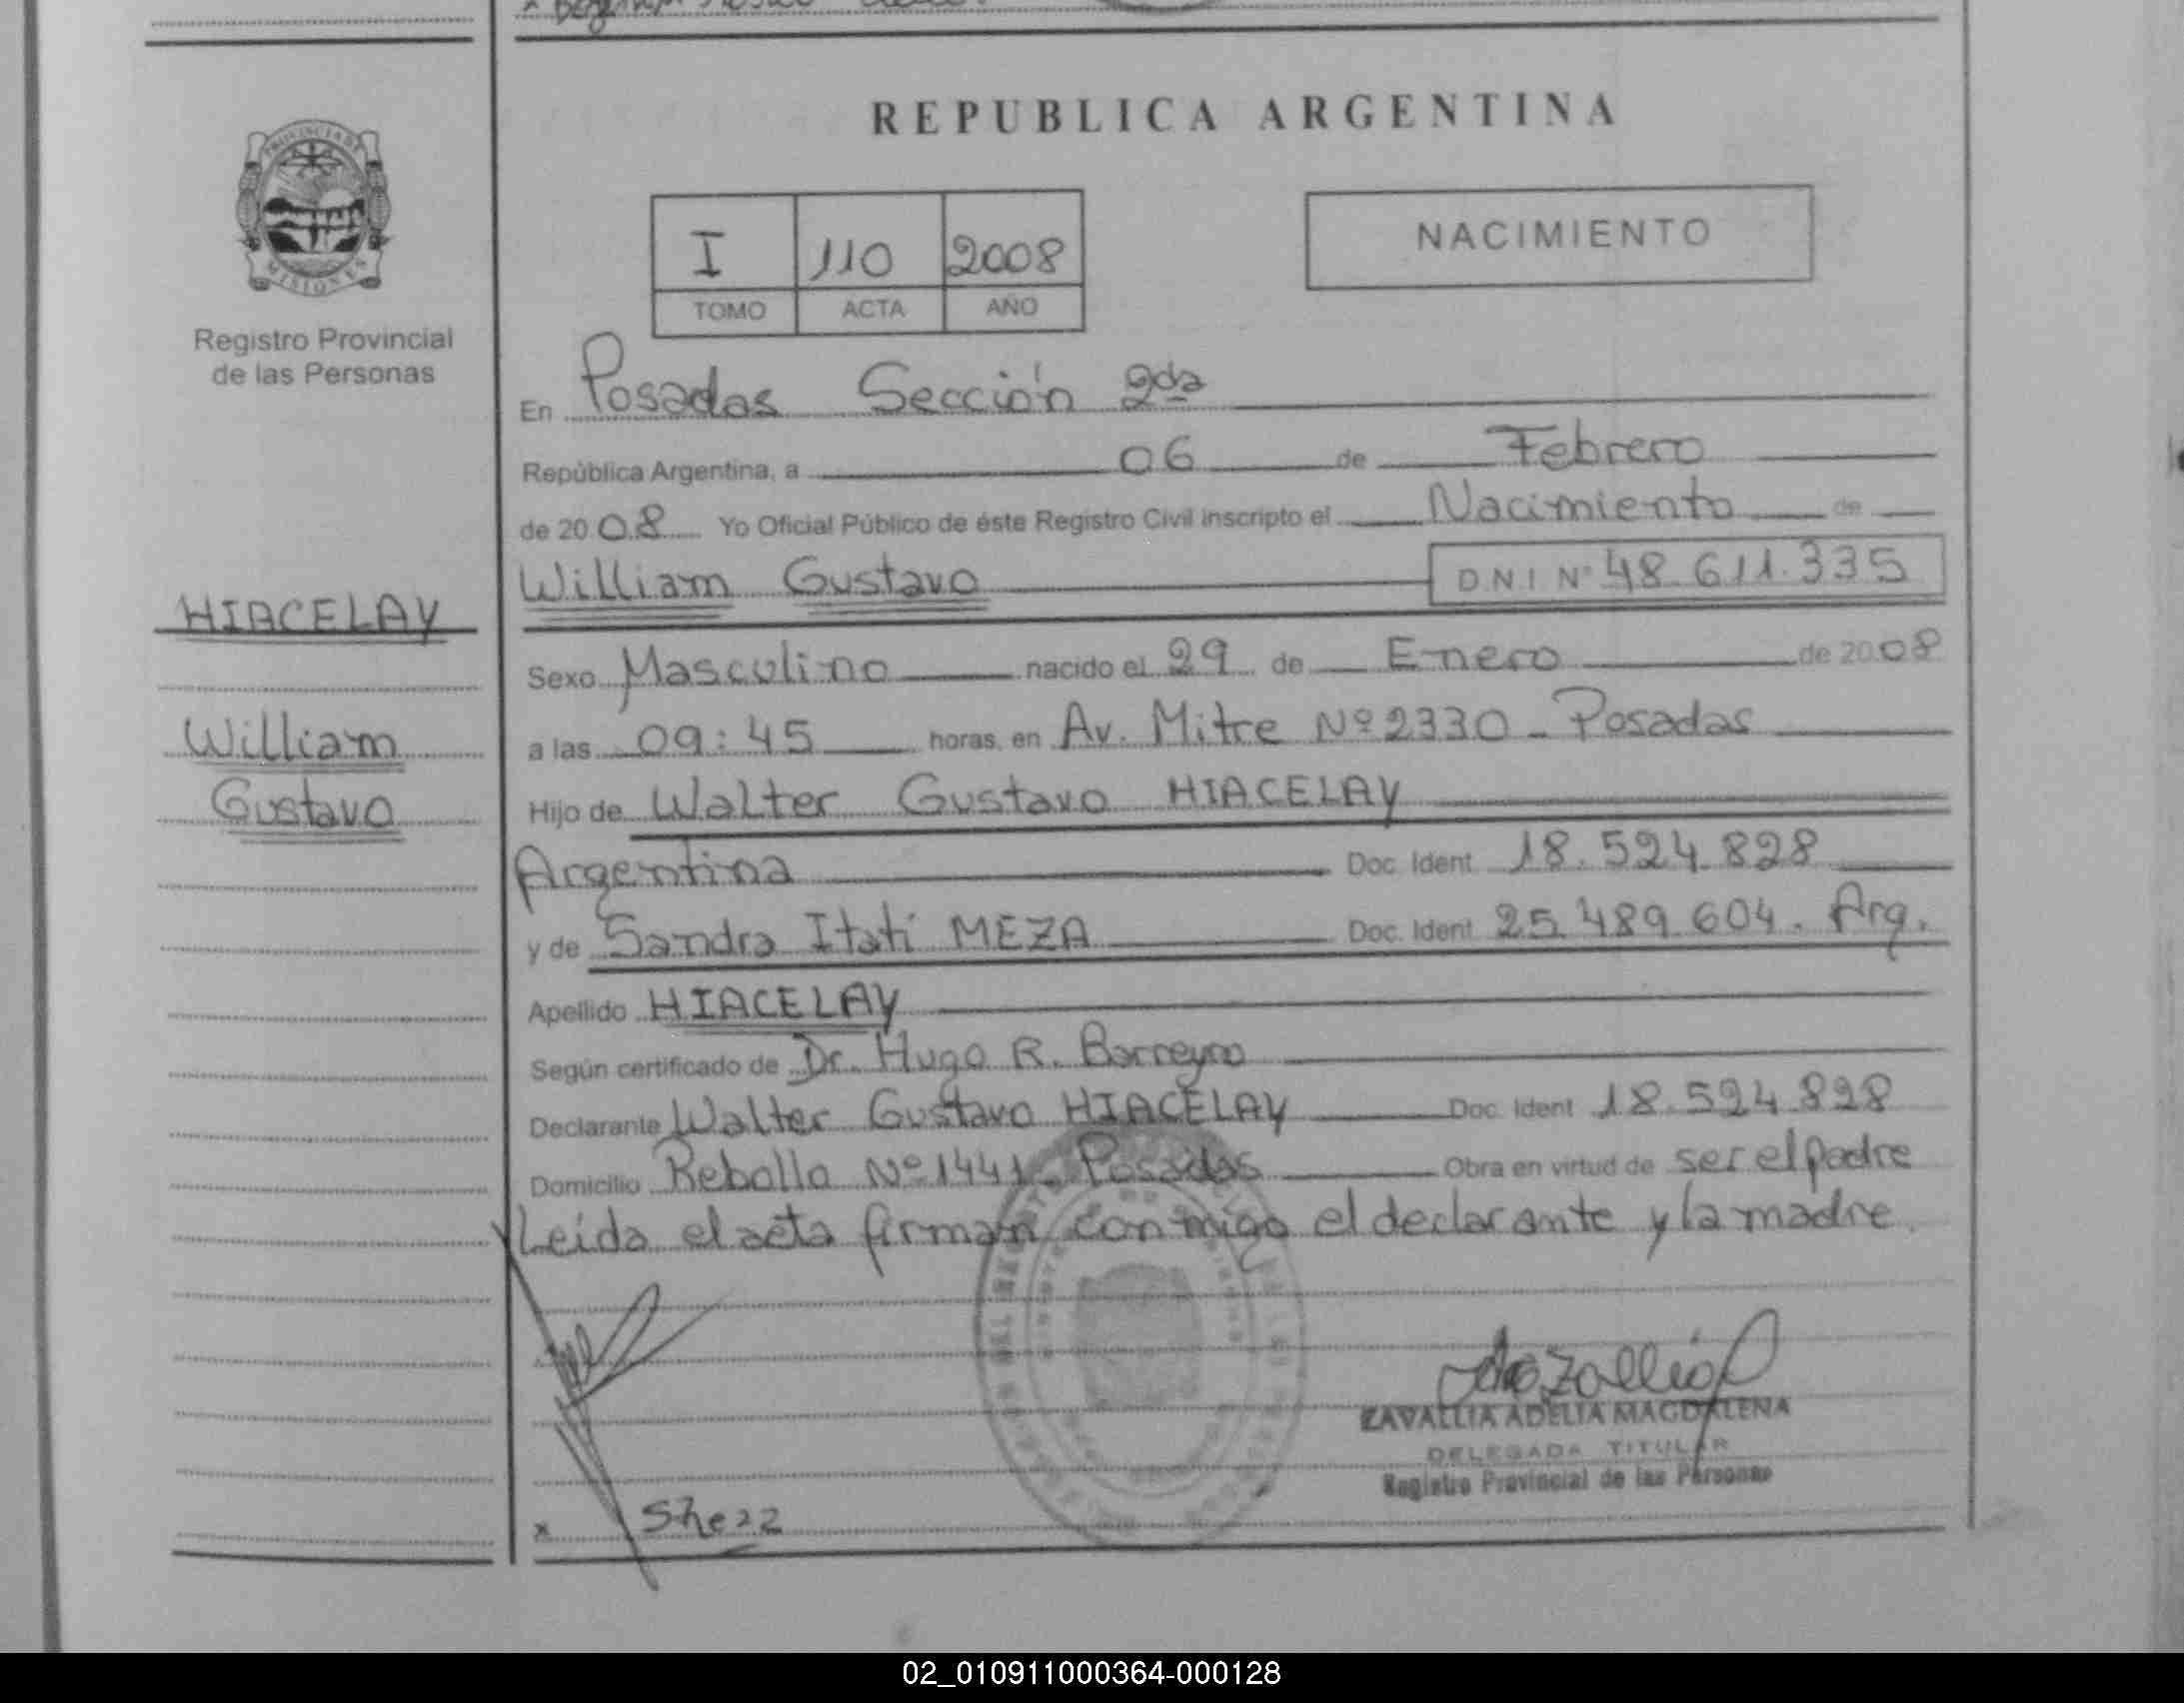 REPUBLICA ARGENTINA
PROVINCIA DE
MISIONES
Registro Provincial
de las Personas
I 110 2008
TOMO ACTA AÑO
NACIMIENTO
En Posadas Sección 2da
República Argentina, a 06 de Febrero
de 2008 Yo Oficial Público de éste Registro Civil inscripto el Nacimiento de
William Gustavo DNI Nº 48.611.335
HIACELAY
William
Gustavo
Sexo Masculino nacido el 29 de Enero de 2008
a las 09:45 horas, en Av. Mitre Nº 2330 - Posadas
Hijo de Walter Gustavo HIACELAY
Argentina Doc. Ident 18.524.828
y de Sandra Itatí MEZA Doc. Ident 25.489.604. Arg.
Apellido HIACELAY
Según certificado de Dr. Hugo R. Barreyro
Declarante Walter Gustavo HIACELAY Doc. Ident 18.524.828
Domicilio Rebollo Nº 1441. Posadas Obra en virtud de ser el padre
Leída el acta firman conmigo el declarante y la madre.
ZAVALLIA ADELIA MAGDALENA
DELEGADA TITULAR
Registro Provincial de las Personas
x
02_010911000364-000128